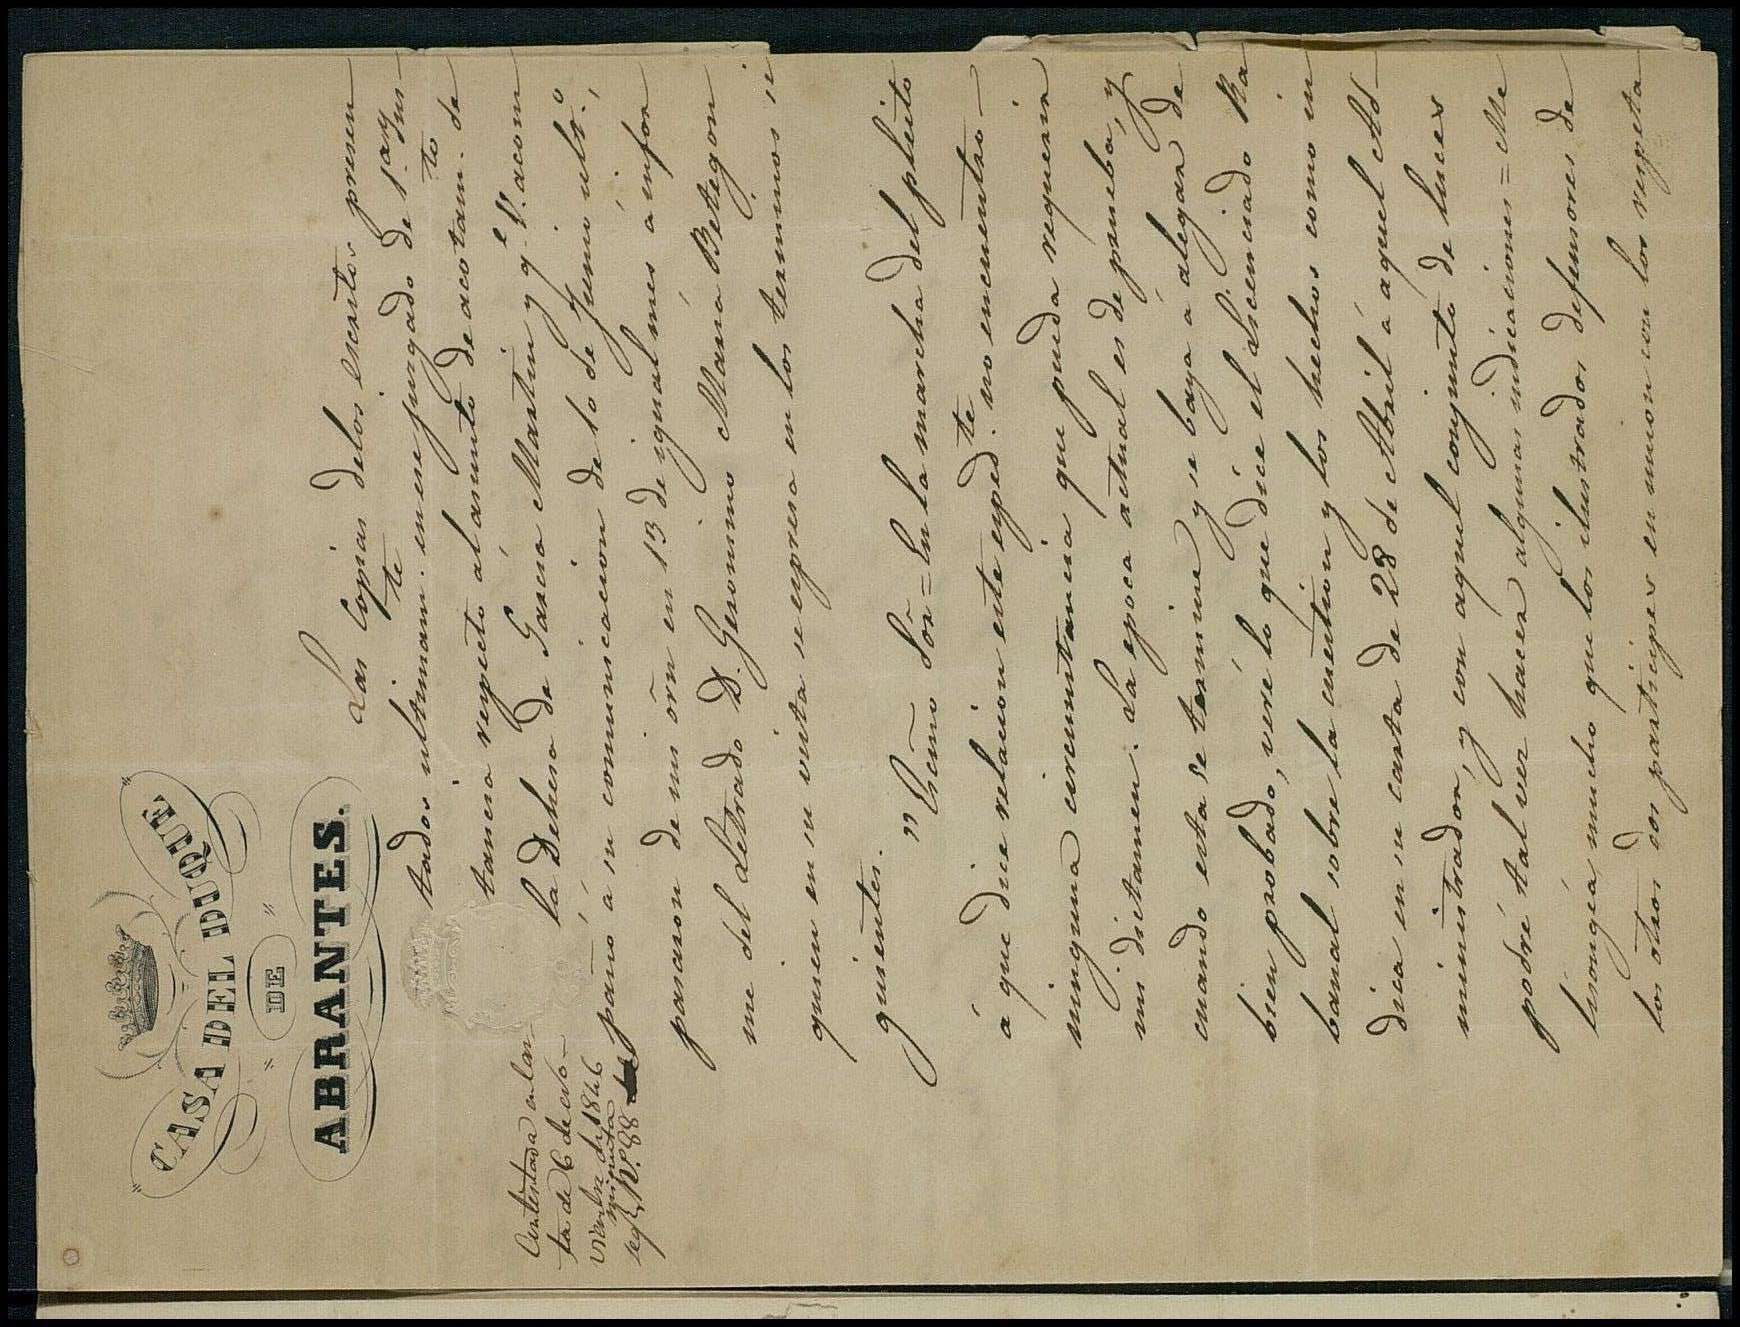 "CASA DEL DUQUE
" DE "
ABRANTES.
Contestada en car
ta de 6 de no
viembre de 1846
minuta
segn N.º 88
Las Copias delos escritos presen
tados ultimam.te en ese juzgado de 1.a Ins
tancia respecto al asunto de acotam.to de
la Dehesa de Garcia Martin y q.e V. acom
pañó á su comunicacion de 10 de Junio ult.o,
pasaron de mi orñ en 13 de igual mes a infor
me del Letrado D. Geronimo Maria Betegon
quien en su vista se expresa en los terminos si
guientes.
" Excmo Sõr = En la marcha del pleito
á que dice relacion este exped.te no encuentro
ninguna circunstancia que pueda requerir
mi dictamen. La epoca actual es de prueba, y
cuando esta se termine y se baya á alegar de
bien probado, veré lo que dice el Licenciado Ra
banal sobre la cuestion y los hechos como in
dica en su carta de 28 de Abril á aquel Ad
ministrador, y con aquel conjunto de luces
podré tal vez hacer algunas indicaciones = Me
lisongéa mucho que los ilustrados defensores de
los otros dos participes en union con los respeta